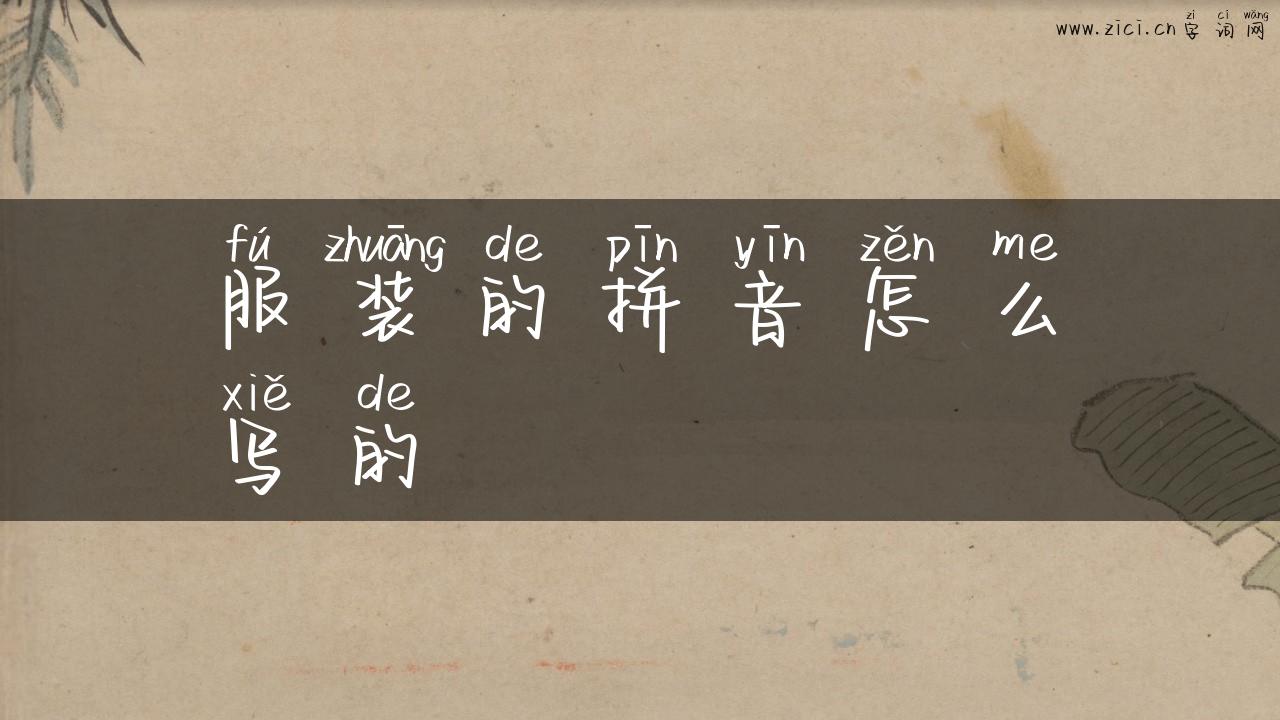 zì cí wǎng
www.zici.cn 字 词 网
fú zhuāng de pīn yīn zěn me
服 装 的 拼 音 怎 么
xiě de
写 的